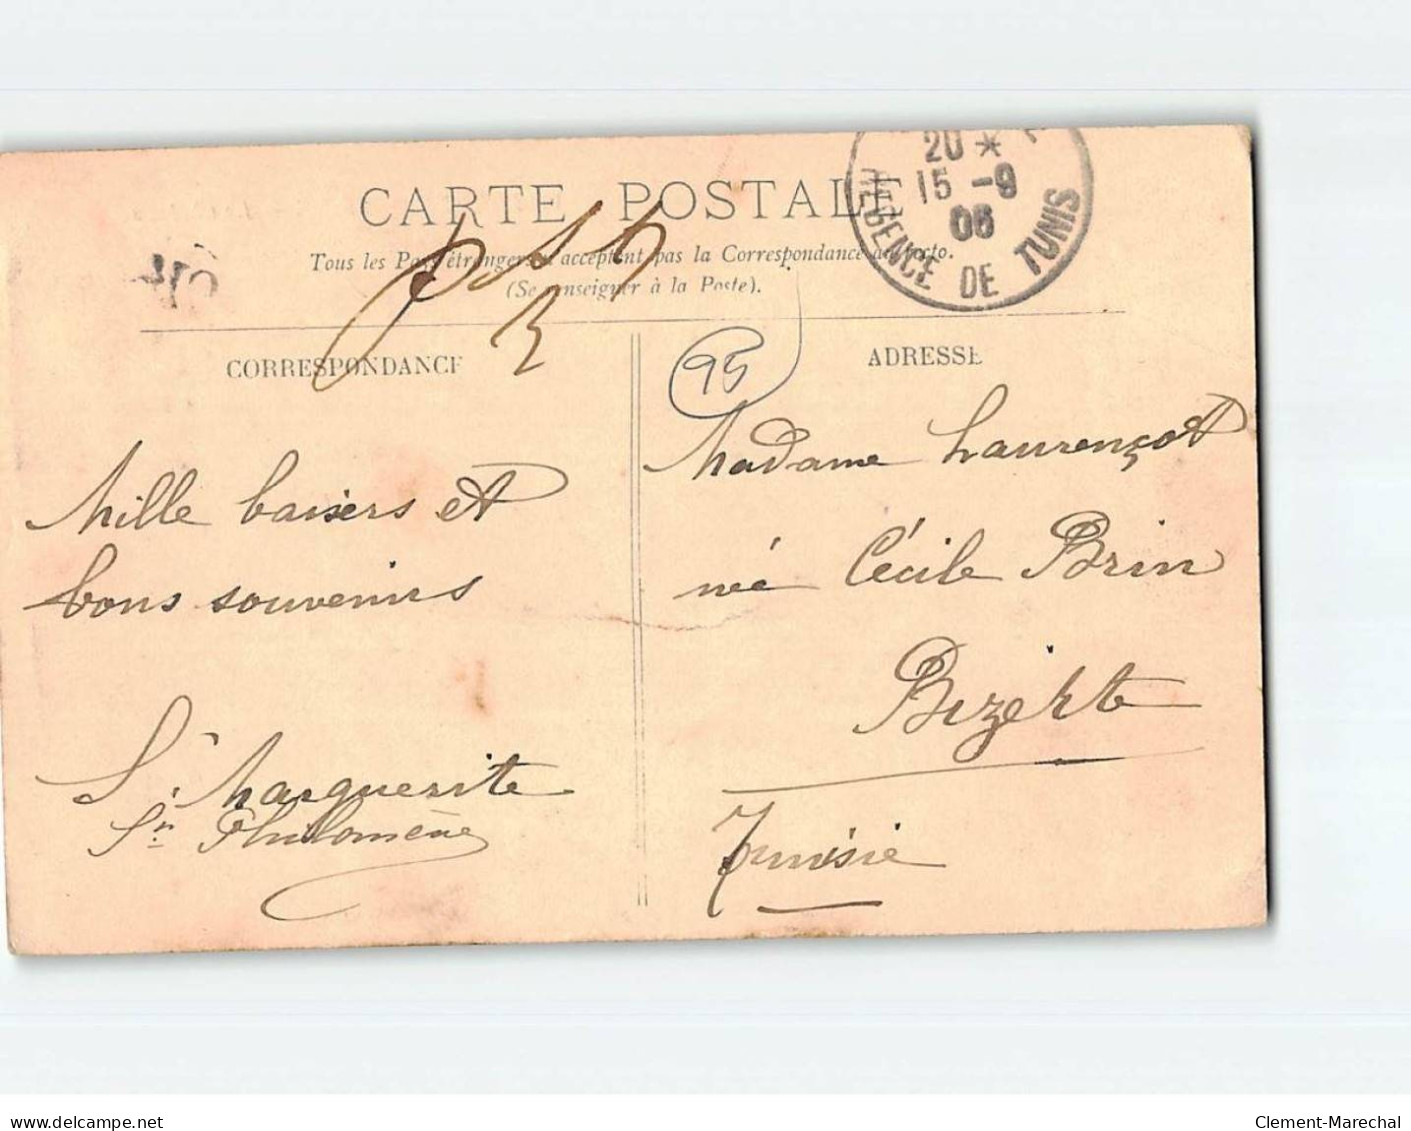 20 *
15 -9
06
REGENCE DE TUNIS
CARTE POSTALE
Tous les Pays étrangers n'acceptent pas la Correspondance au recto.
(Se renseigner à la Poste).
CORRESPONDANCE
ADRESSE
95
Mille baisers et
bons souvenirs
Sr Marguerite
Sr Philomène
Madame Laurençot
née Cécile Brin
Bizerte
Tunisie
delcampe.net
Clement-Marechal